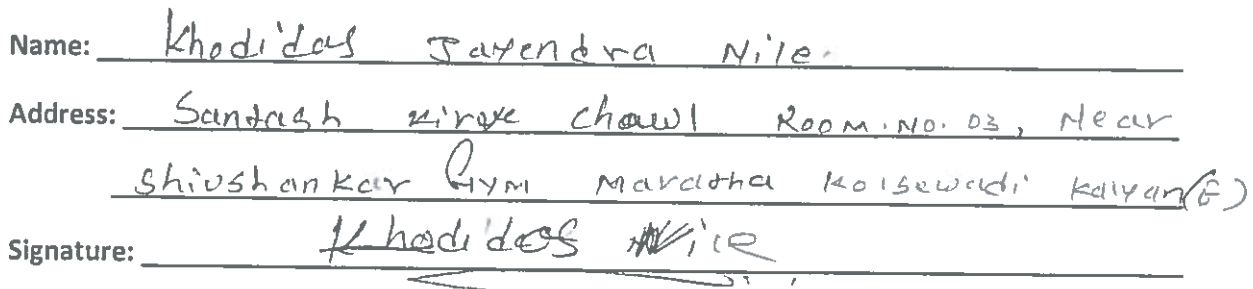 Name: Khodidas Jayendra Nile.
Address: Santash Kirve Chawl Room. No. 03, Near
Shivshankar Gym Maratha Kolsewadi Kalyan (E)
Signature: Khodidas Nile